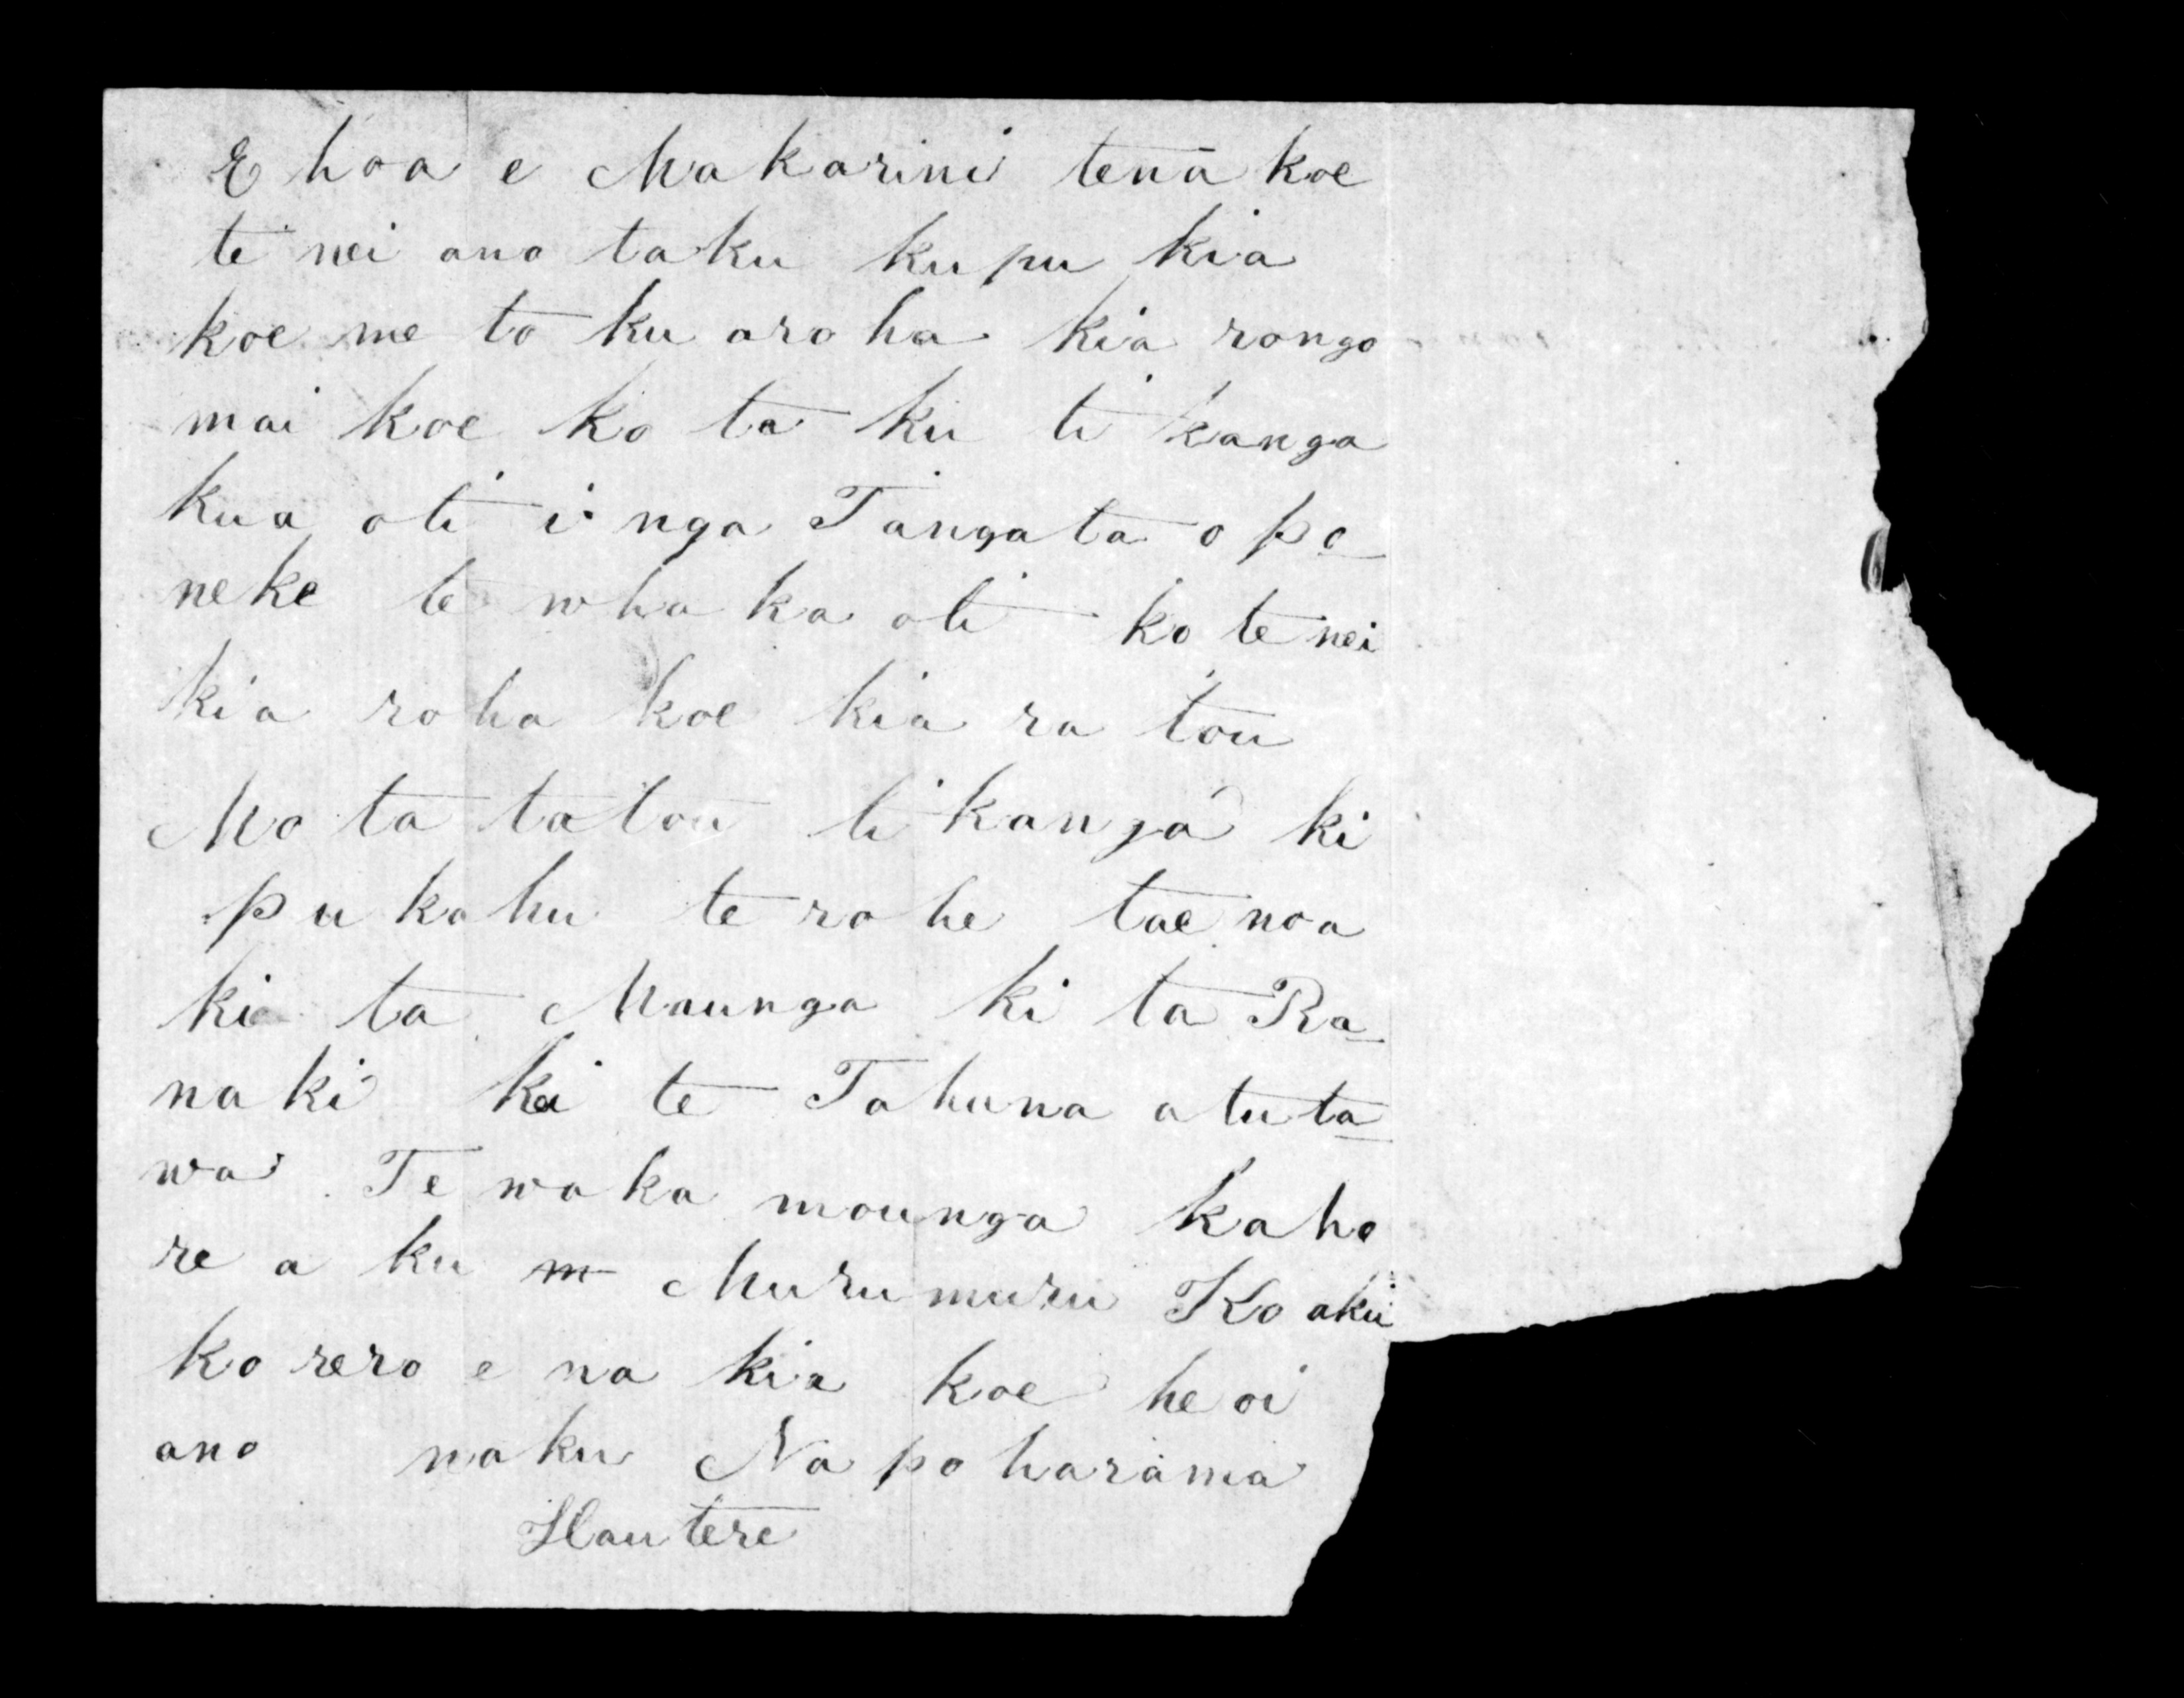 E hoa e Makarini tena koe
te nei ano taku kupu kia
koe me to ku aroha kia rongo
mai koe ko ta ku ti kanga
kua oti i nga Tangata o po
neke te wha ka oti ko te nei
kia roha koe kia ra tou
Mo ta tatou ti kanga ki
pu kahu te rohe tae noa
ki ta Maunga ki ta Ra
na ki kei te Tahuna a tu ta
wa Te waka mounga kaho
re a ku m Muru muru Ko aku
ko rero e na kia koe he oi
ano naku Na po harama
Hautere